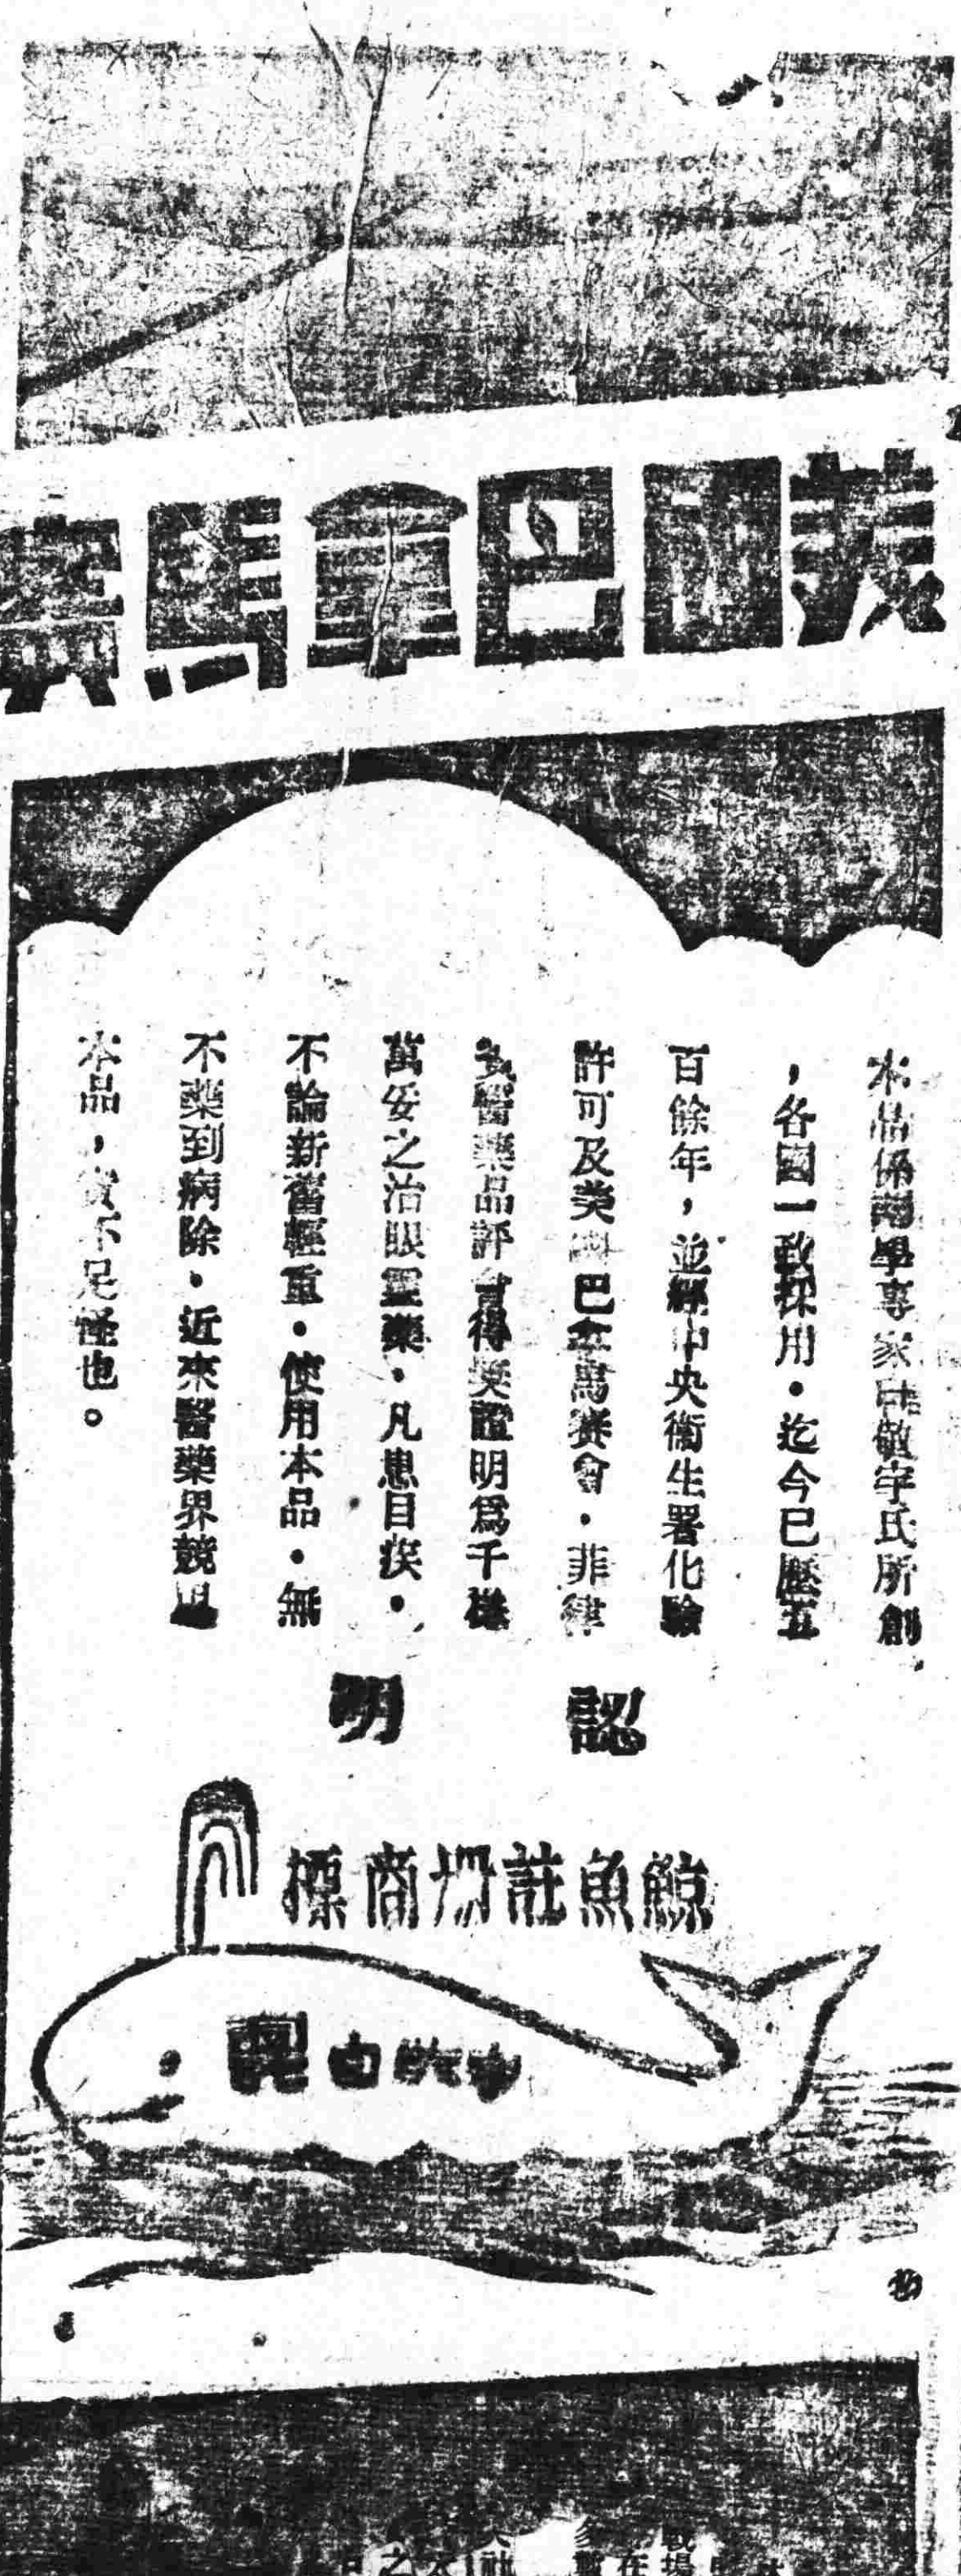 美國巴拿馬賽
本品係眼學專家馬敬宇氏所創
，各國一致採用・迄今已歷五
百餘年，並經中央衞生署化驗
許可及美國巴拿馬賽會・菲律
醫藥品評會得奬證明爲千穩
萬妥之治眼靈藥・凡患目疾・
不論新舊輕重・使用本品・無
不藥到病除・近來醫藥界競
本品，實不足怪也。
認明
鯨魚註册商標